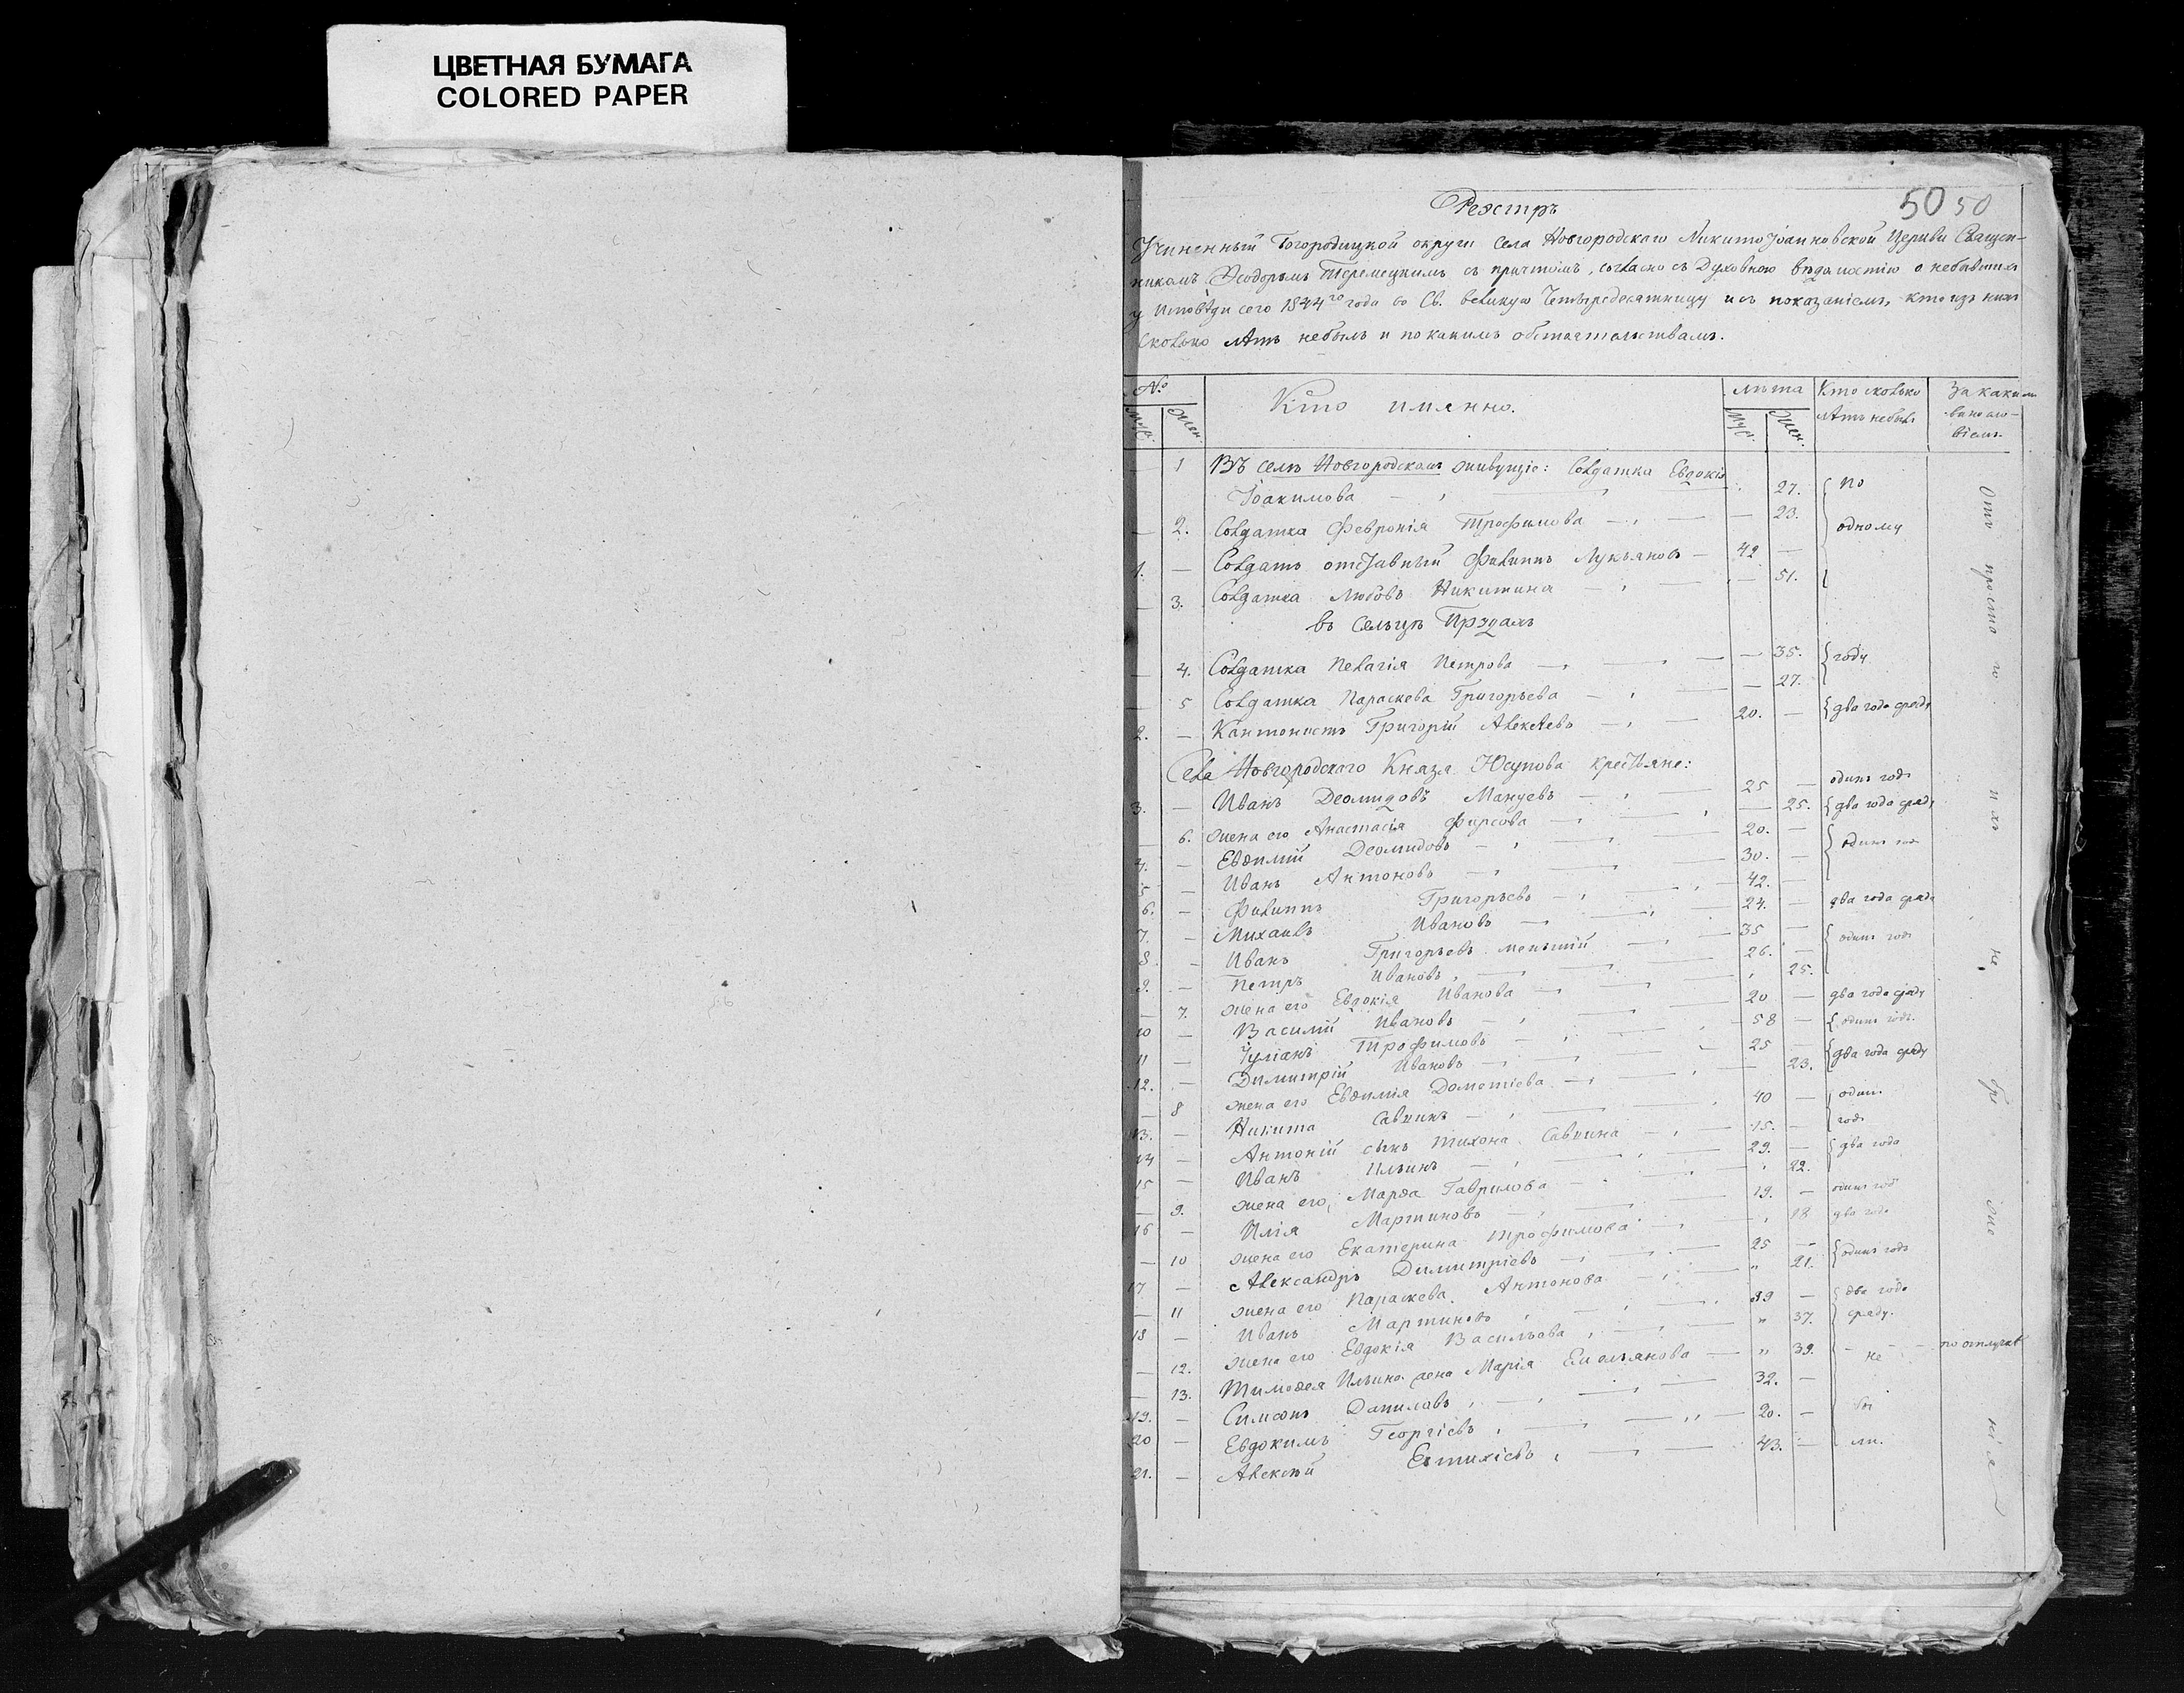 ЦВЕТНАЯ БУМАГА
COLORED PAPER
50 50
Реэстръ
Учиненный Богородицкой округи села Новгородскаго НикитоІоанновской Церкви Священ-
никомъ Ѳеодоромъ Теремецкимъ съ причтомъ, согласно съ Духовною вѣдомостію о небывших
у Исповѣди сего 1844го года во Св. великую Четыредесятницу и съ показаніемъ, кто изъ нихъ
сколько лѣтъ небылъ и по какимъ обстоятельствамъ.
№ Кто имянно. лѣта Кто сколько За каким
Муж. Жен. Муж. Жен. лѣтъ небылъ
— 1 Въ селѣ Новгородскомъ живущіе: Солдатка Евдокія
Іоакимова — 27. по
— 2. Солдатка Февронія Трофимова — 23. одному
1. — Солдатъ отставный Филиппъ Лукьяновъ — 42 —
— 3. Солдатка Любовь Никитина — 51.
въ Сельцѣ Прудахъ
— 4. Солдатка Пелагія Петрова — 35. году
— 5 Солдатка Параскева Григорьева — 27.
2. — Кантонистъ Григорій Алексѣевъ — 20. — два года сряду
Села Новгородского Князя Юсупова крестьяне:
3. — Иванъ Деомидовъ Мануевъ — 25 — одинъ годъ
— 6. жена его Анастасія Фирсова — 25. два года сряду
4. — Евѳимій Деомидовъ — 20. — одинъ год
5 — Иванъ Антоновъ — 30. —
6. — Филиппъ Григорьевъ — 42. —
7. — Михаилъ Ивановъ — 24. — два года сряду
8. — Иванъ Григорьевъ меньшій — 35 — одинъ годъ
9. — Петръ Ивановъ — 26. —
— 7. жена его Евдокія Иванова — 25.
10 — Василій Ивановъ — 20 — два года сряду
11 — Іуліанъ Трофимовъ — 58 — одинъ годъ.
12. — Димитрій Ивановъ — 25 — два года сряду
— 8 жена его Евѳимія Дометіева — 23.
13. — Никита Саввинъ — 40 — одинъ
14 — Антоній сынъ Тихона Саввина — 15. — годъ
15 — Иванъ Ильинъ — 29. — два года
— 9. жена его, Марѳа Гаврилова — 22.
16 — Илія Мартиновъ — 19. — одинъ год
— 10 жена его Екатерина Трофимова — 18 два года
17 — Александръ Димитріевъ — 25 — одинъ годъ
— 11 жена его Параскева Антонова — 21.
18 — Иванъ Мартиновъ — 39 — два года
— 12. жена его Евдокія Васильева — 37. сряду.
— 13. Тимоѳея Ильина жена Марія Емельянова — 39. — по отлучкѣ
19. — Симеонъ Даниловъ — 32. — не
20 — Евдокимъ Георгіевъ — 20. — бы
21. — Алексѣй Евтихіевъ — 43. — ли.